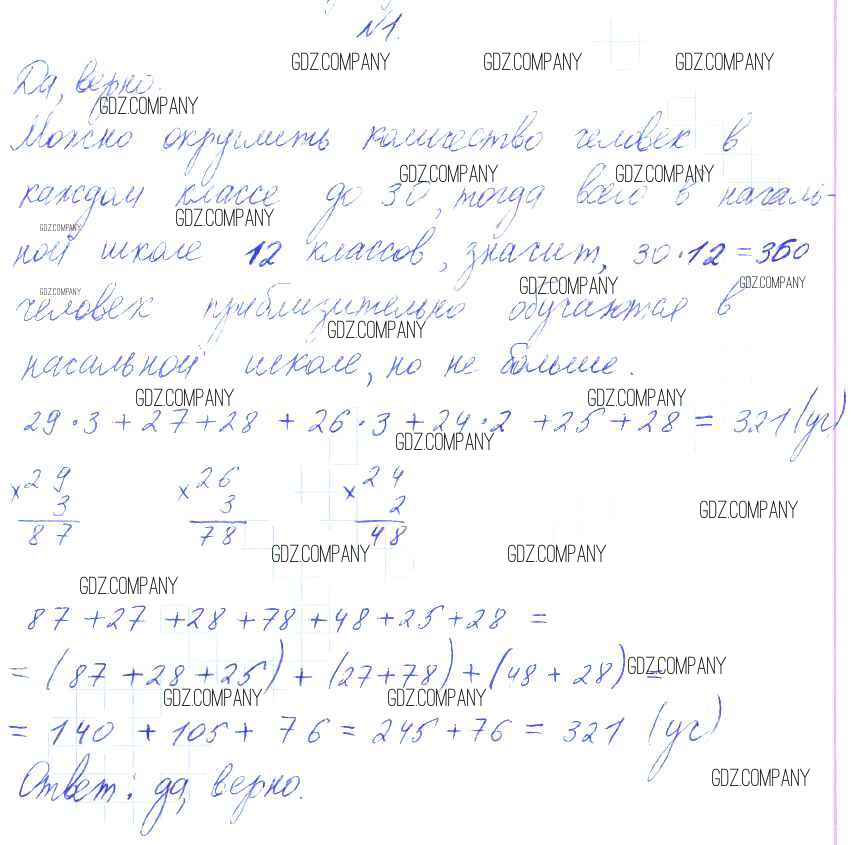 №1.
GDZ.COMPANY GDZ.COMPANY GDZ.COMPANY
Да, верно.
GDZ.COMPANY
Можно округлить количество человек в
GDZ.COMPANY GDZ.COMPANY
каждом классе до 30, тогда всего в началь-
GDZ.COMPANY
GDZ.COMPANY
ной школе 12 классов, значит, 30·12=360
GDZ.COMPANY GDZ.COMPANY GDZ.COMPANY
человек приблизительно обучаются в
GDZ.COMPANY
начальной школе, но не больше.
GDZ.COMPANY GDZ.COMPANY
29·3+27+28+26·3+24·2+25+28=321(уч)
GDZ.COMPANY
×29 ×26 ×24
3 3 2
87 78 48
GDZ.COMPANY
GDZ.COMPANY GDZ.COMPANY
GDZ.COMPANY
87+27+28+78+48+25+28=
=(87+28+25)+(27+78)+(48+28)=
GDZ.COMPANY
GDZ.COMPANY GDZ.COMPANY
=140+105+76=245+76=321 (уч)
Ответ: да, верно.
GDZ.COMPANY